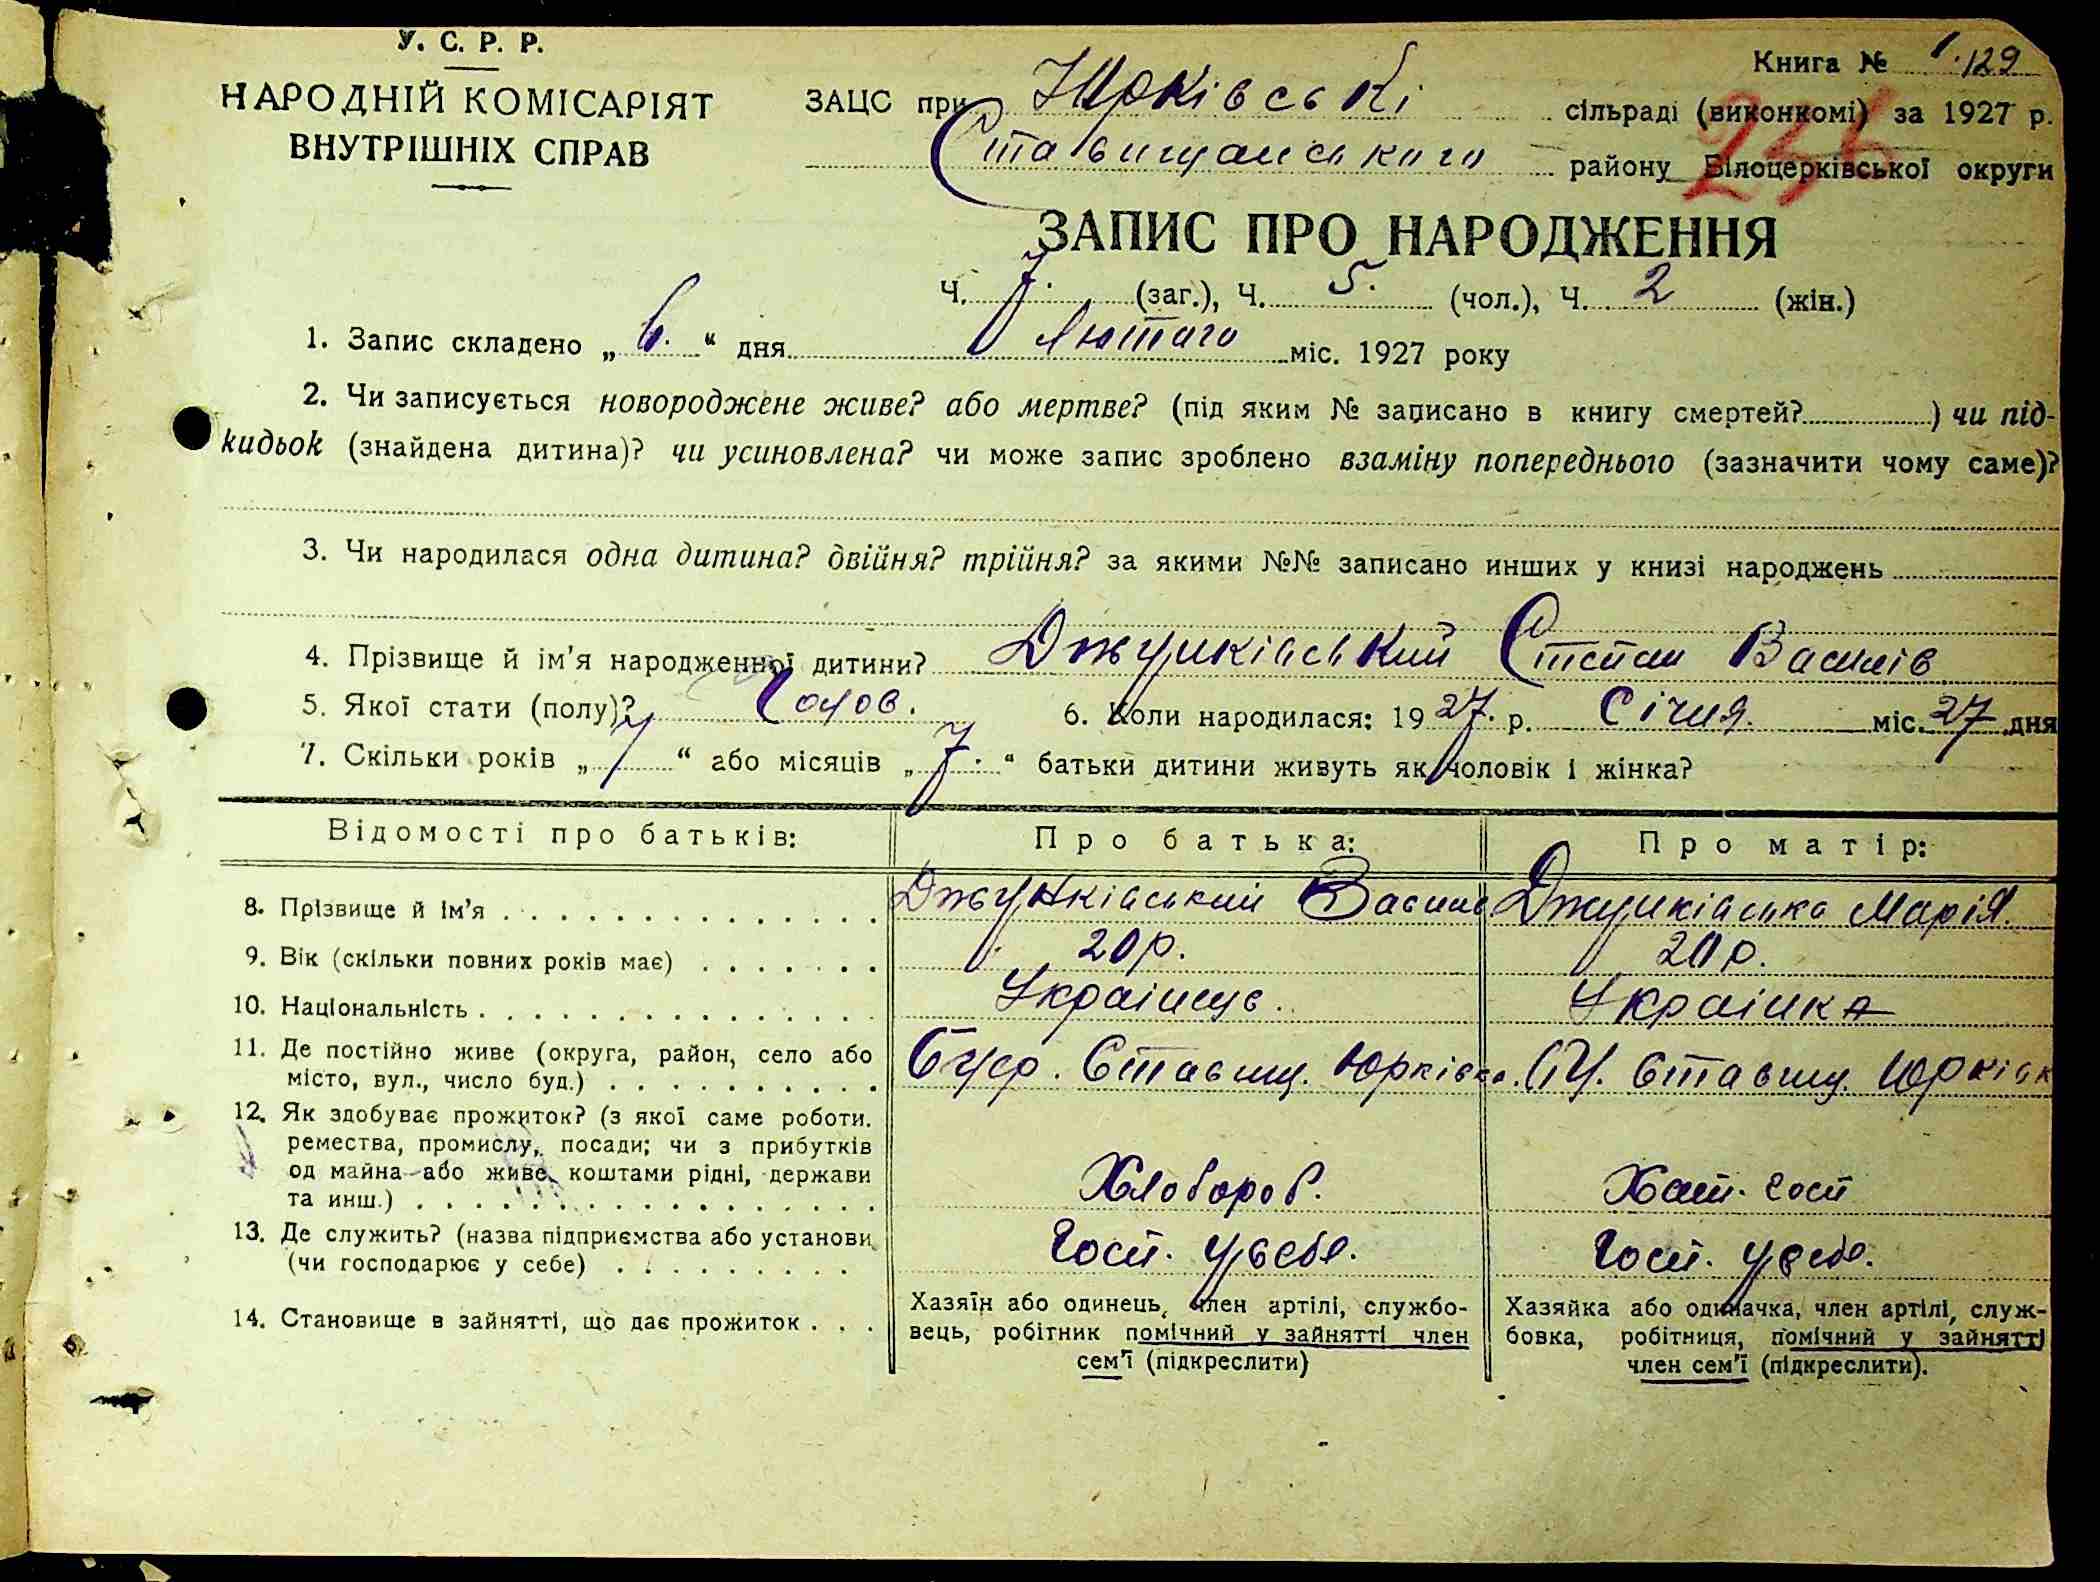 У. С. Р. Р.
НАРОДНІЙ КОМІСАРІЯТ
ВНУТРІШНІХ СПРАВ
Книга № 1. 129
ЗАЦС при Юрківські сільраді (виконкомі) за 1927 р.
Ставищанського району Білоцерківської округи
ЗАПИС ПРО НАРОДЖЕННЯ
Ч. 7. (заг.), Ч. 5. (чол.), Ч. 2 (жін.)
1. Запис складено „ 6. “ дня Лютого міс. 1927 року
2. Чи записується новороджене живе? або мертве? (під яким № записано в книгу смертей? ) чи під-
кидьок (знайдена дитина)? чи усиновлена? чи може запис зроблено взаміну попереднього (зазначити чому саме)?
3. Чи народилася одна дитина? двійня? трійня? за якими №№ записано инших у книзі народжень
4. Прізвище й ім'я народженної дитини? Джунківський Степан Василів
5. Якої стати (полу)? Чолов. 6. Коли народилася: 1927. р. Січня. міс. 27 дня
7. Скільки років „ “ або місяців „ 7. “ батьки дитини живуть як чоловік і жінка?
Відомості про батьків: Про батька: Про матір:
8. Прізвище й ім'я Джунківський Василь Джунківська Марія.
9. Вік (скільки повних років має) 20 р. 20 р.
10. Національність Украінцє. Украінка
11. Де постійно живе (округа, район, село або
місто, вул., число буд.) Ставищ. Юрківка. Ставищ. Юрківк
12. Як здобуває прожиток? (з якої саме роботи.
ремества, промислу, посади; чи з прибутків
од майна або живе коштами рідні, держави
та инш.) Хлобороб. Хат. госп
13. Де служить? (назва підприємства або установи
(чи господарює у себе) Госп. у себе. Госп. у себе.
14. Становище в зайнятті, що дає прожиток
Хазяїн або одинець, член артілі, службо-
вець, робітник помічний у зайнятті член
сем'ї (підкреслити)
Хазяйка або одиначка, член артілі, служ-
бовка, робітниця, помічний у зайнятті
член сем'ї (підкреслити).